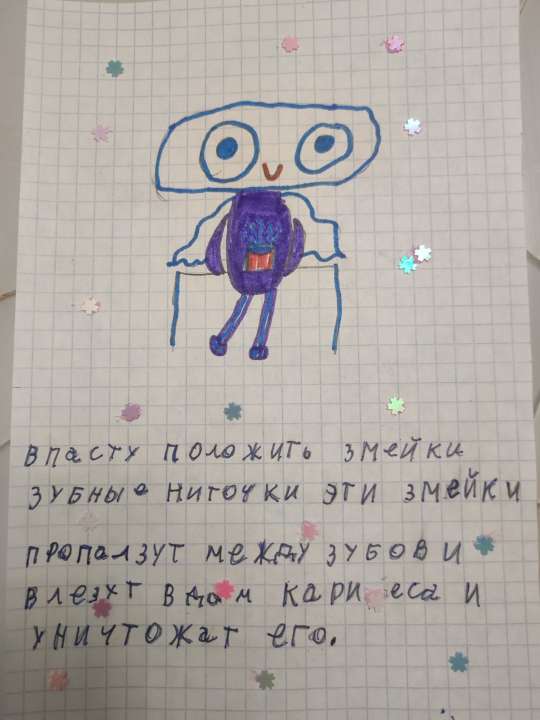 ВПАСТУ ПОЛОЖИТЬ ЗМЕЙКИ
ЗУБНЫЕ НИТОЧКИ ЭТИ ЗМЕЙКИ
ПРОПАЛЗУТ МЕЖДУ ЗУБОВ И
ВЛЕЗУТ В ДОМ КАРИЕСА И
УНИЧТОЖАТ ЕГО.